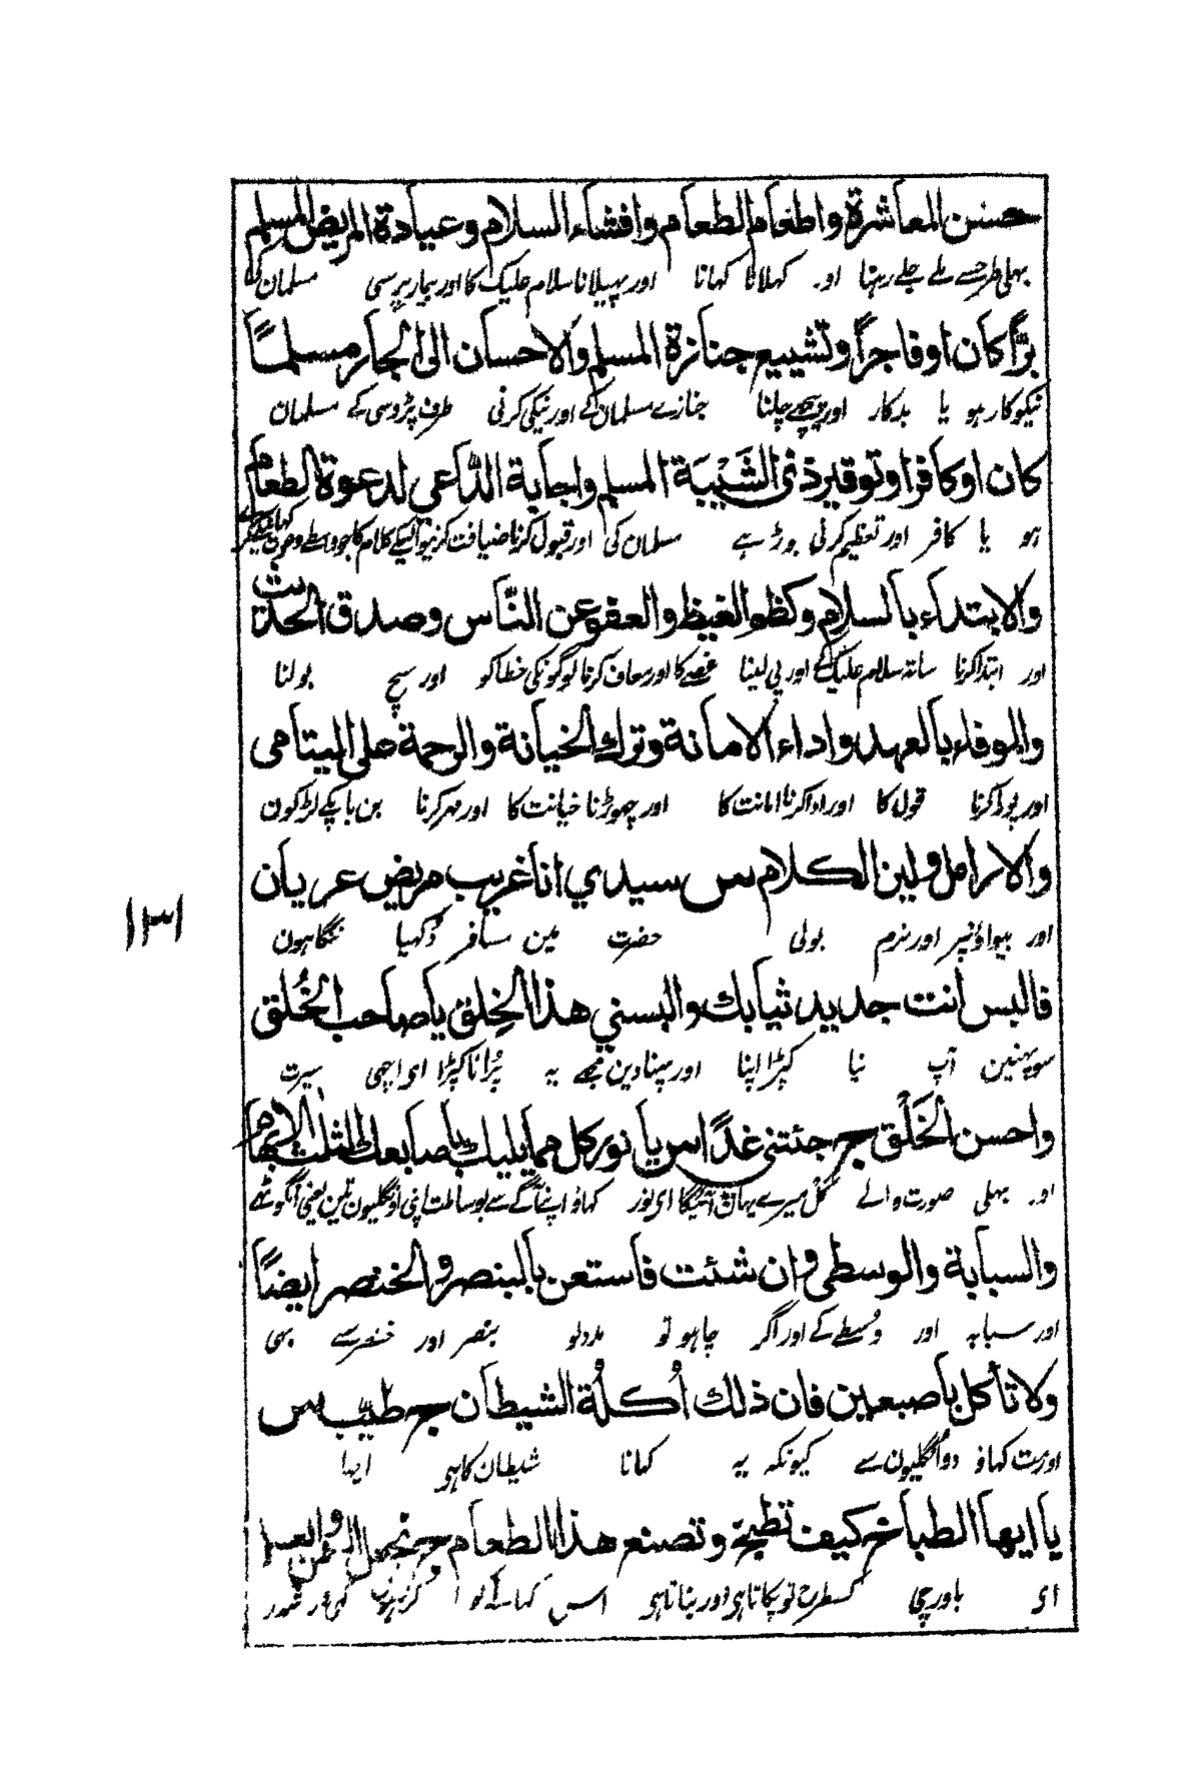 حسن المعاشرة واطعام الطعام وافشاء السلام وعيادة المريض المسلم
بهلی طرحسے ملے جلے رہنا او۔ کہلانا کہانا اور پہیلانا سلام علیک کا اور بیمار پرسی مسلمان کی
برًّا كان اوفاجرًا وتشييع جنازة المسلم والاحسان الى الجار مسلمًا
نیکوکار ہو یا بدکار اور پیچھے چلنا جنازے مسلمان کے اور نیکی کرنی طرف پڑوسی کے مسلمان
كان اوكافرا وتوقير ذى الشَّيْبَة المسلم واجابة الدّاعي لدعوة الطعام
ہو یا کافر اور تعظیم کرنی بوڑہے مسلمان کی اور قبول کرنا ضیافت کرنیوالیکے کلام کا جو واسطے
والابتداء بالسلام وكظم الغيظ والعفو عن النّاس وصدق الحديث
اور ابتدا کرنا ساتہ سلام علیک کے اور پی لینا غصے کا اور معاف کرنا لوگونکی خطا کو اور سچ بولنا
والوفاء بالعهد واداء الامانة وترك الخيانة والرحمة على اليتامى
اور پورا کرنا قول کا اور ادا کرنا امانت کا اور چہوڑنا خیانت کا اور مہر کرنا بن باپکے لڑکون
والارامل ولين الكلام س سيدي انا غريب مريض عريان
اور بیواؤنپر اور نرم بولی حضرت مین مسافر دُکہیا ننگا ہون
فالبس انت جديد ثيابك والبسني هذا الخِلق ياصاحب الخُلق
سو پہنین آپ نیا کپڑا اپنا اور پہنا دین مجھے یہ پُرانا کپڑا ای اچھی سیرت
واحسن الخَلْق ج جئتني غدًا س يا نور كل مما يليك باصابعك الثلث الابهام
او۔ بہلی صورت والے کل میرے یہان آئیگا ای نور کہاؤ اپنے آگے سے بوساطت اپنی اونگلیون تین یعنی انگوٹھے
والسبابة والوسطى وان شئت فاستعن بالبنصر والخنصر ايضًا
اور سبابہ اور وُسطیٰ کے اور اگر چاہو تو مدد لو بنصر اور خنصر سے بہی
ولا تأكل باصبعين فان ذلك اُكلُة الشيطان ج طيّب س
اور مت کہاؤ دو اُنگلیون سے کیونکہ یہ کہانا شیطان کا ہی اچہا
يا ايها الطباخ كيف تطبخ وتصنع هذا الطعام ج
ای باورچی کسطرح تو پکاتا ہی اور بناتا ہی اس کہانے کو
۱۳۱